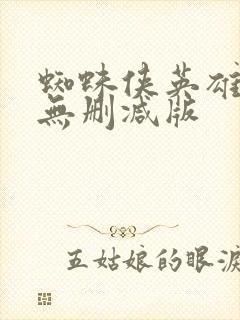 蜘蛛侠英雄
無删减版
五姑娘的眼淚